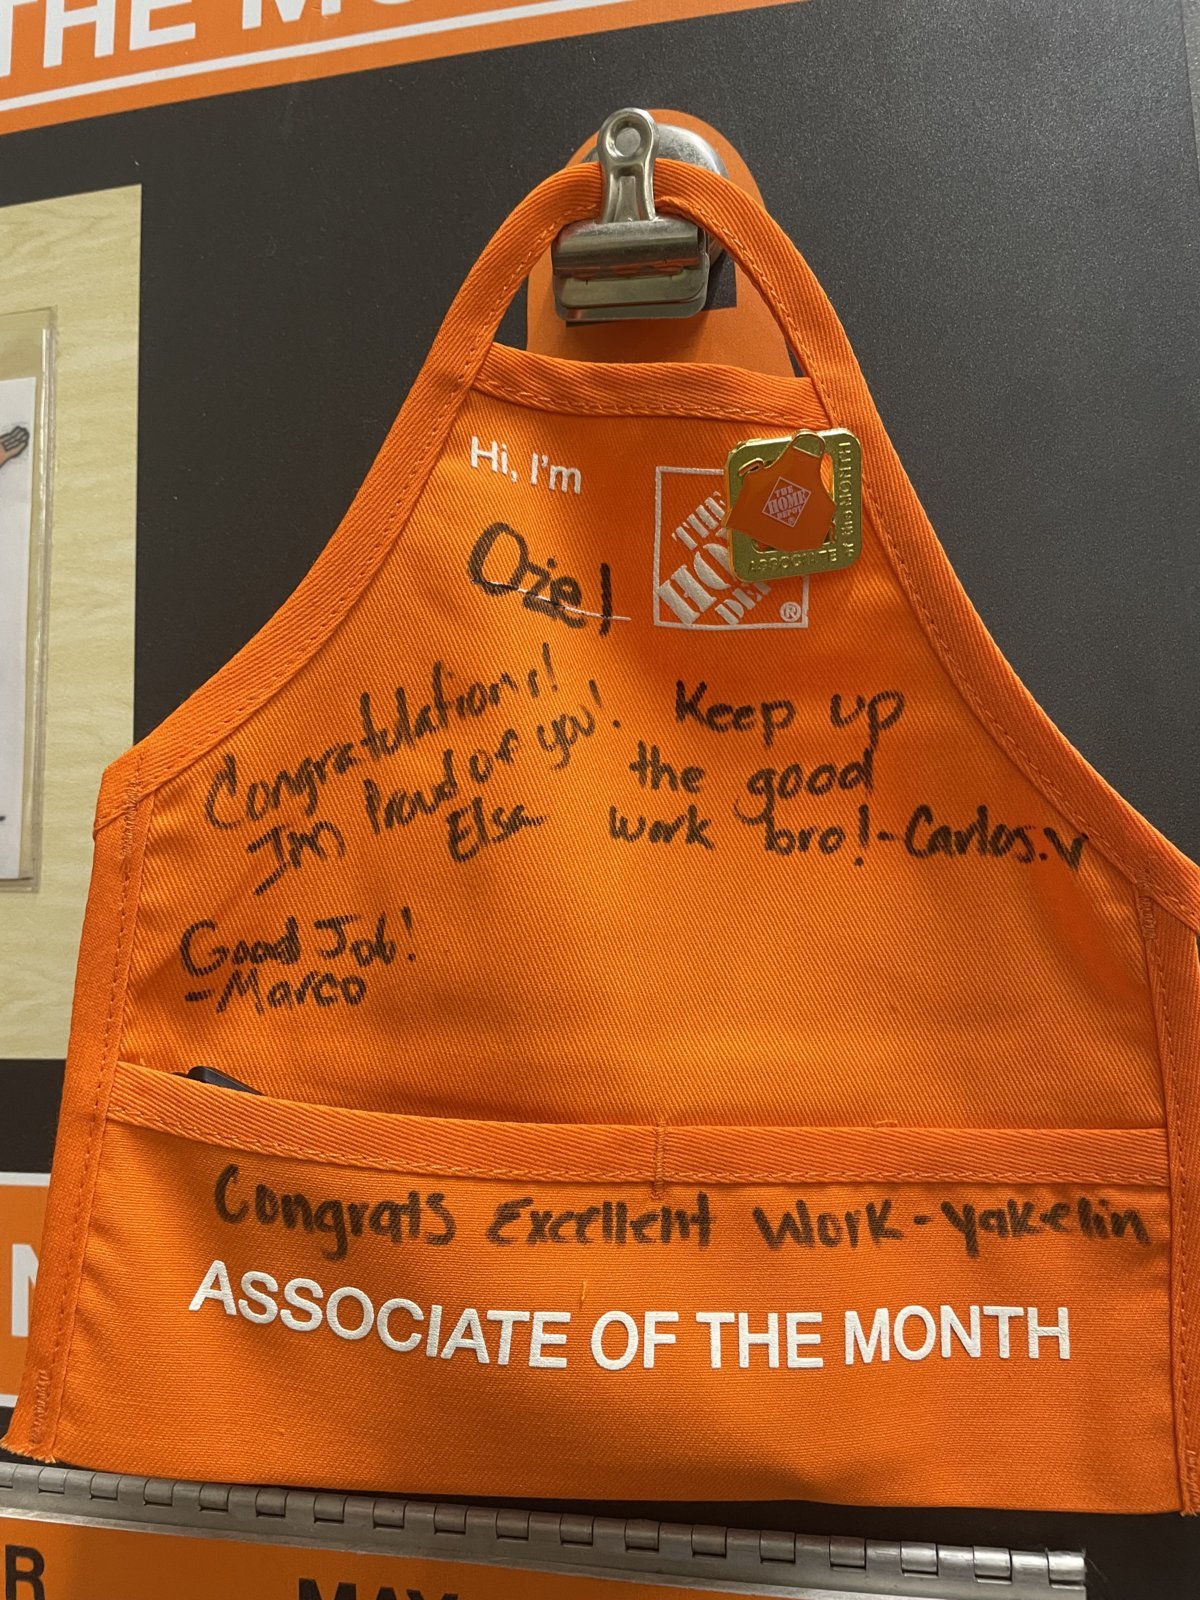 THE MO
Hi, I'm
Oziel
THE
HO
DE
®
THE
HOME
DEPOT
®
ASSOCIATE of the MONTH
Congratulations!
I'm Proud of you!
Elsa
Keep up
the good
work bro!-Carlos.V
Good Job!
-Marco
Congrats Excellent Work-yakelin
ASSOCIATE OF THE MONTH
R
MAY